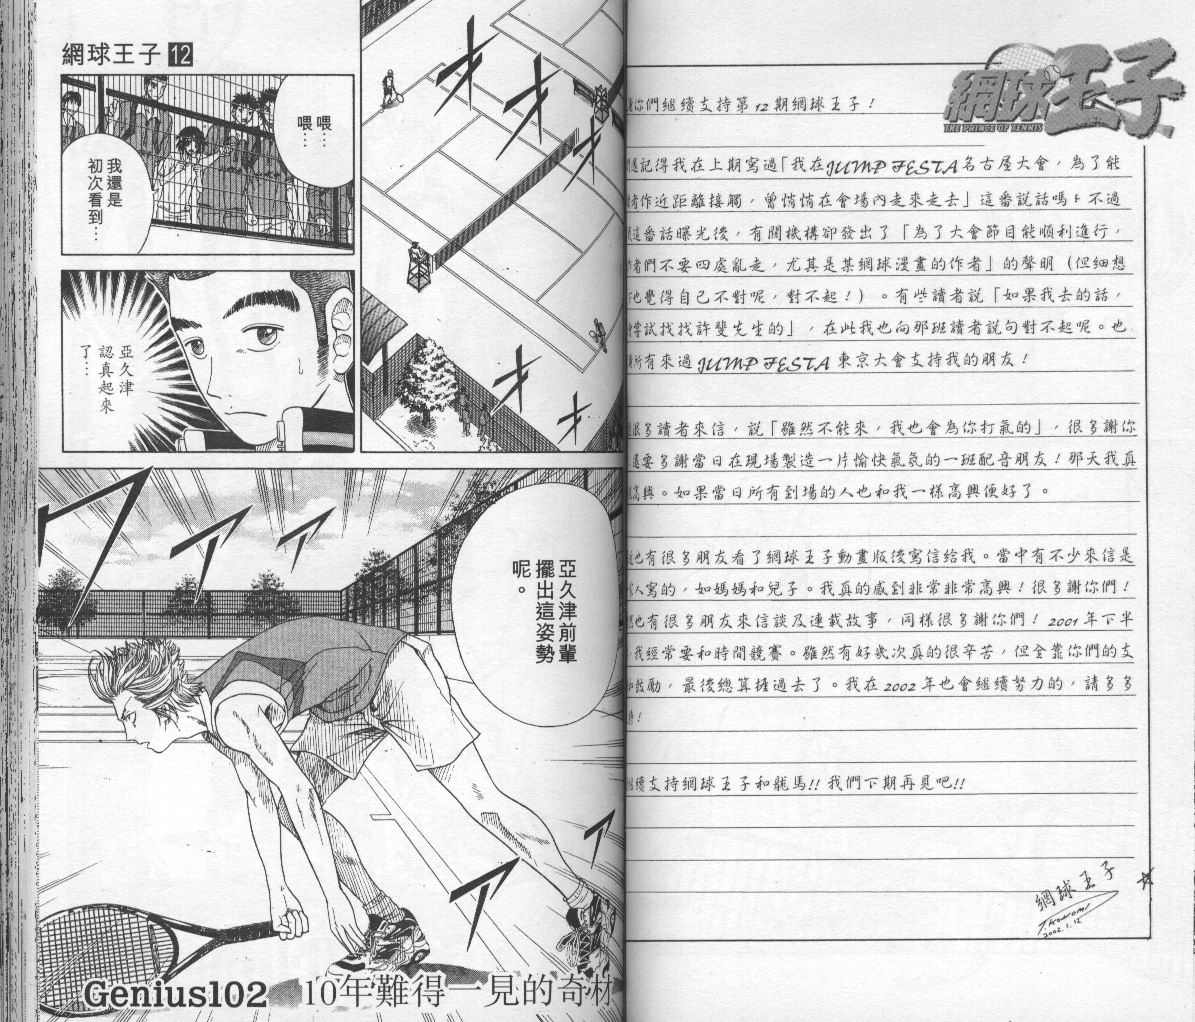 網球王子
THE PRINCE OF TENNIS
你們繼續支持第12期網球王子！
記得我在上期寫過「我在JUMP FESTA名古屋大會，為了能
作近距離接觸，曾悄悄在會場內走來走去」這番說話嗎？不過
這番話曝光後，有關機構卻發出了「為了大會節目能順利進行，
者們不要四處亂走，尤其是某網球漫畫的作者」的聲明（但細想
也覺得自己不對呢，對不起！）。有些讀者說「如果我去的話，
嘗試找找許斐先生的」，在此我也向那班讀者說句對不起呢。也
所有來過JUMP FESTA東京大會支持我的朋友！
很多讀者來信，說「雖然不能來，我也會為你打氣的」，很多謝你
還要多謝當日在現場製造一片愉快氣氛的一班配音朋友！那天我真
高興。如果當日所有到場的人也和我一樣高興便好了。
也有很多朋友看了網球王子動畫版後寫信給我。當中有不少來信是
人寫的，如媽媽和兒子。我真的感到非常非常高興！很多謝你們！
也有很多朋友來信談及連載故事，同樣很多謝你們！2001年下半
我經常要和時間競賽。雖然有好幾次真的很辛苦，但全靠你們的支
鼓勵，最後總算捱過去了。我在2002年也會繼續努力的，請多多
！
繼續支持網球王子和龍馬!!我們下期再見吧!!
網球王子
2002.1.12
網球王子 12
喂…
喂…
我還是
初次看到…
亞久津
認真起來
了…
亞久津前輩
擺出這姿勢
呢。
Genius102 10年難得一見的奇材